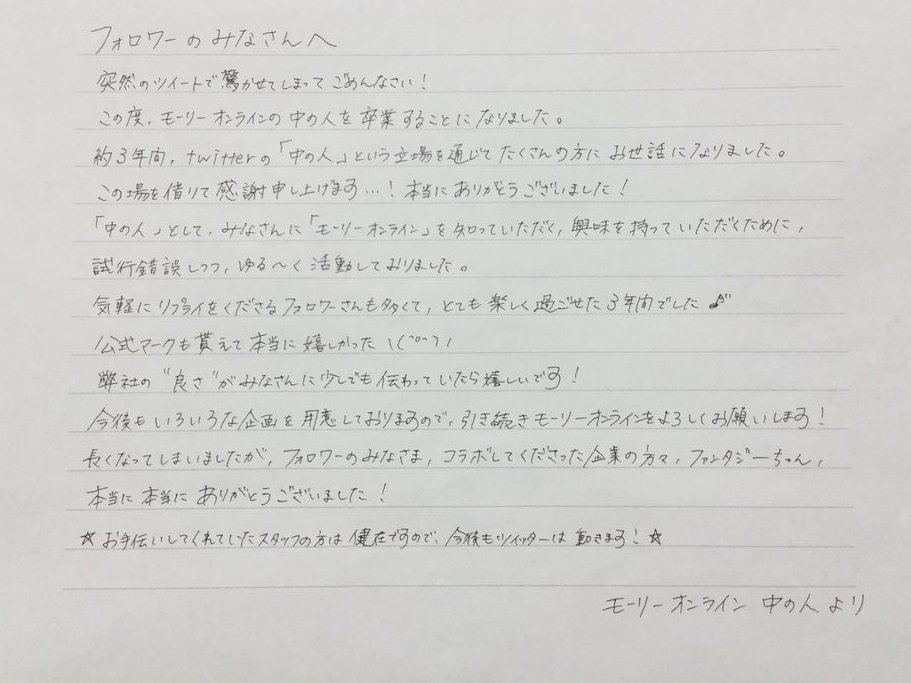 フォロワーのみなさんへ
突然のツイートで驚かせてしまってごめんなさい!
この度、モーリーオンラインの中の人を卒業することになりました。
約3年間、twitterの「中の人」という立場を通じてたくさんの方にお世話になりました。
この場を借りて感謝申し上げます…!本当にありがとうございました!
「中の人」として、みなさんに「モーリーオンライン」を知っていただく,興味を持っていただくために,
試行錯誤しつつ,ゆる〜く活動しておりました。
気軽にリプライをくださるフォロワーさんも多くて,とても楽しく過ごせた3年間でした♪
公式マークも貰えて本当に嬉しかった\(^o^)/
弊社の"良さ"がみなさんに少しでも伝わっていたら嬉しいです!
今後もいろいろな企画を用意しておりますので、引き続きモーリーオンラインをよろしくお願いします!
長くなってしまいましたが,フォロワーのみなさま,コラボしてくださった企業の方々,ファンタジーちゃん,
本当に本当にありがとうございました!
☆お手伝いしてくれていたスタッフの方は健在ですので、今後もツイッターは動きます!☆
モーリーオンライン 中の人より